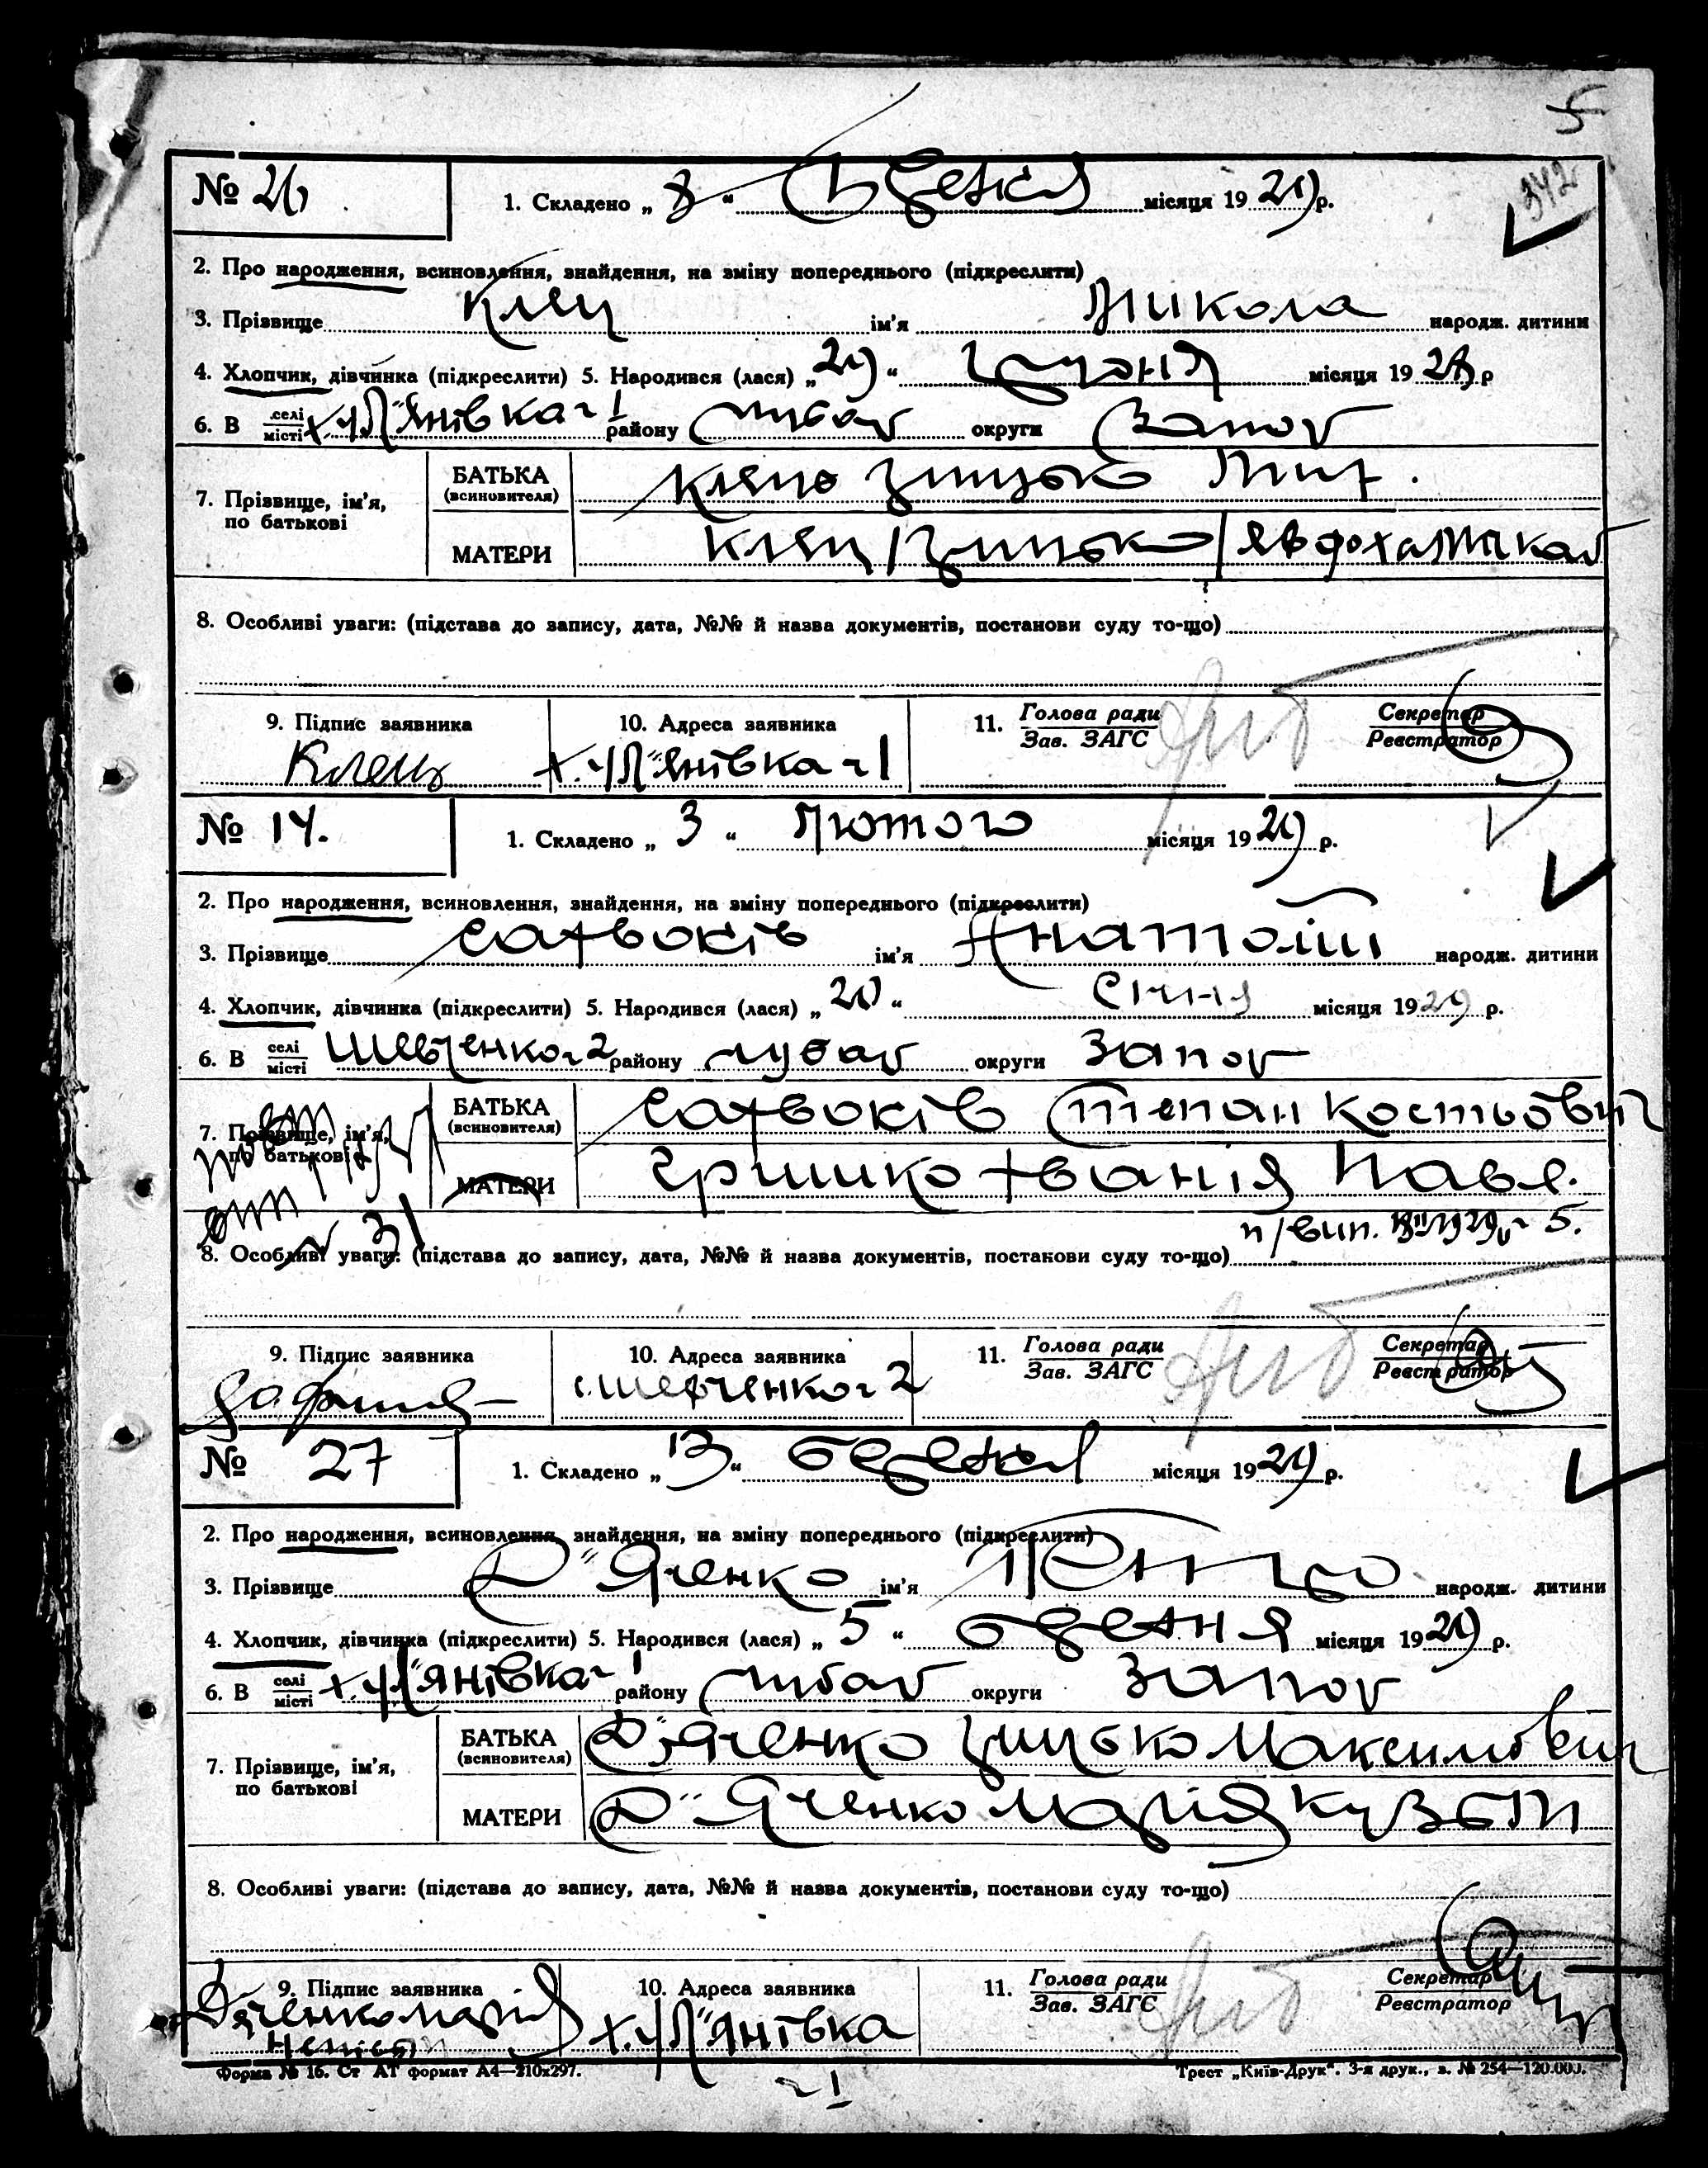 5
342
№ 26 1. Складено „ 8 “ Березня місяця 1929 р.
2. Про народження, всиновлення, знайдення, на зміну попереднього (підкреслити)
3. Прізвище Клец ім'я Микола народж. дитини
4. Хлопчик, дівчинка (підкреслити) 5. Народився (лася) „ 29 “ місяця 1928 р
6. В селі місті х. Ул"янівка №1 району Любах округи Запор
7. Прізвище, ім'я, по батькові
БАТЬКА (всиновителя) Клец Грицько
МАТЕРИ Клец Грицько
8. Особливі уваги: (підстава до запису, дата, №№ й назва документів, постанови суду то-що)
9. Підпис заявника 10. Адреса заявника 11. Голова ради Зав. ЗАГС Секретар Реєстратор
Клец х. Ул"янівка №1
№ 14. 1. Складено „ 3 “ Лютого місяця 1929 р.
2. Про народження, всиновлення, знайдення, на зміну попереднього (підкреслити)
3. Прізвище ім'я Анатолій народж. дитини
4. Хлопчик, дівчинка (підкреслити) 5. Народився (лася) „ 20 “ Січня місяця 1929 р.
6. В селі місті Шевченко №2 району Любах округи Запор
7. Прізвище, ім'я, по батькові
БАТЬКА (всиновителя) Степан Костьович
МАТЕРИ Гришко Павл.
8. Особливі уваги: (підстава до запису, дата, №№ й назва документів, постакови суду то-що) п/вип. № 5.
9. Підпис заявника 10. Адреса заявника 11. Голова ради Зав. ЗАГС Секретар Реєстратор
с. Шевченко №2
№ 27 1. Складено „ 13 “ Березня місяця 1929 р.
2. Про народження, всиновлення, знайдення, на зміну попереднього (підкреслити)
3. Прізвище Д"яченко ім'я Петро народж. дитини
4. Хлопчик, дівчинка (підкреслити) 5. Народився (лася) „ 5 “ Березня місяця 1929 р.
6. В селі місті х. Ул"янівка №1 району Любах округи Запор
7. Прізвище, ім'я, по батькові
БАТЬКА (всиновителя) Д"яченко Грицько Максимович
МАТЕРИ Д"яченко Марія Кузьм
8. Особливі уваги: (підстава до запису, дата, №№ й назва документів, постанови суду то-що)
9. Підпис заявника 10. Адреса заявника 11. Голова ради Зав. ЗАГС Секретар Реєстратор
Дяченко Марія х. Ул"янівка
№1
Форма № 16. Ст АТ формат А4—210х297. Трест „Київ-Друк". 3-я друк., з. № 254—120.000.